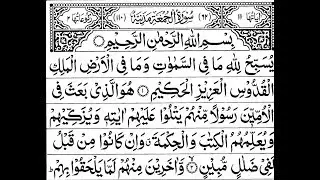 اٰيَاتُهَا ١١ (٦٢) سُوْرَةُ الْجُمُعَةِ مَدَنِيَّةٌ (١١٠) رُكُوْعَاتُهَا ٢
بِسْمِ اللّٰهِ الرَّحْمٰنِ الرَّحِيْمِ
يُسَبِّحُ لِلّٰهِ مَا فِى السَّمٰوٰتِ وَمَا فِى الْاَرْضِ الْمَلِكِ
الْقُدُّوْسِ الْعَزِيْزِ الْحَكِيْمِ ١ هُوَ الَّذِىْ بَعَثَ فِى
الْاُمِّيّٖنَ رَسُوْلًا مِّنْهُمْ يَتْلُوْا عَلَيْهِمْ اٰيٰتِهٖ وَيُزَكِّيْهِمْ
وَيُعَلِّمُهُمُ الْكِتٰبَ وَالْحِكْمَةَ وَاِنْ كَانُوْا مِنْ قَبْلُ
لَفِىْ ضَلٰلٍ مُّبِيْنٍ ٢ وَّاٰخَرِيْنَ مِنْهُمْ لَمَّا يَلْحَقُوْا بِهِمْ ط